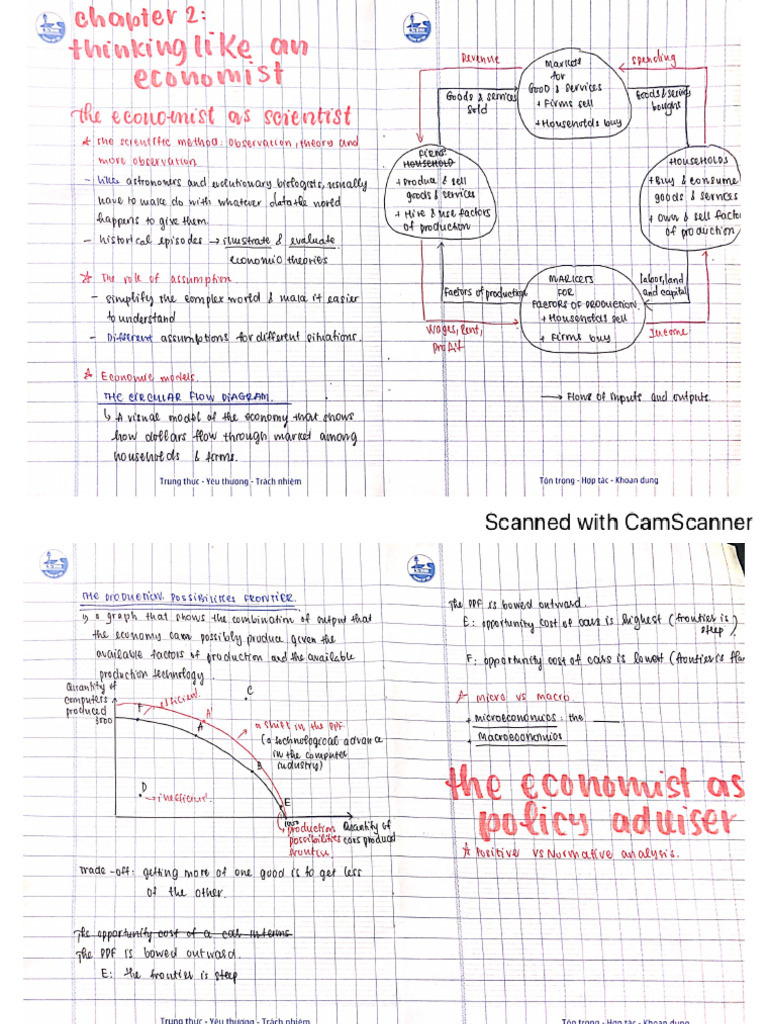 chapter 2:
thinking like an
economist
the economist as scientist
* The scientific method: observation, theory and
more observation
- Like astronomers and evolutionary biologists, usually
have to make do with whatever data the world
happens to give them.
- historical episodes → illustrate & evaluate
economic theories
* The role of assumption
- simplify the complex world & make it easier
to understand
- Different assumptions for different situations.
* Economic models.
THE CIRCULAR FLOW DIAGRAM.
↳ A visual model of the economy that shows
how dollars flow through market among
households & firms.
Trung thực - Yêu thương - Trách nhiệm
Revenue
Spending
MARKETS
for
GOOD & Services
+ Firms sell
+ Households buy
Goods & services
sold
Goods & services
bought
FIRMS
HOUSEHOLD
+ Produce & sell
goods & services
+ Hire & use factors
of production
HOUSEHOLDS
+ Buy & consume
goods & services
+ Own & sell facto
of production
Factors of production
MARKETS
FOR
FACTORS OF PRODUCTION
+ Households sell
+ Firms buy
labor, land
and capital
Wages, Rent,
Profit
Income
→ Flows of inputs and outputs
Tôn trọng - Hợp tác - Khoan dung
Scanned with CamScanner
THE PRODUCTION POSSIBILITIES FRONTIER.
↳ a graph that shows the combination of output that
the economy can possibly produce given the
available factors of production and the available
production technology.
Quantity of
computers
produced
3500
F
efficient.
C
A'
A
a shift in the PPF
(a technological advance
in the computer
industry)
B
D
→ inefficient.
E
1000
production
possibilities
frontier
Quantity of
cars produced
Trade-off: getting more of one good is to get less
of the other.
The opportunity cost of a car interms
The PPF is bowed outward.
E: the frontier is steep
Trung thực - Yêu thương - Trách nhiệm
The PPF is bowed outward.
E: opportunity cost of cars is highest (frontier is
steep).
F: opportunity cost of cars is lowest (frontier is flat
* micro vs macro.
+ microeconomics: the
+ Macroeconomics
the economist as
policy adviser
* Positive vs Normative analysis.
Tôn trọng - Hợp tác - Khoan dung